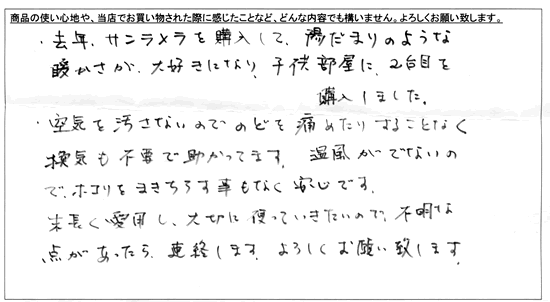 商品の使い心地や、当店でお買い物された際に感じたことなど、どんな内容でも構いません。よろしくお願い致します。
・去年、サンラメラを購入して、陽だまりのような
暖かさが、大好きになり、子供部屋に、2台目を
購入しました。
・空気を汚さないのでのどを痛めたりすることなく
換気も不要で助かってます。 温風がでないの
で、ホコリをまきちらす事もなく安心です。
末長く愛用し、大切に使っていきたいので、不明な
点があったら、連絡します。よろしくお願い致します。